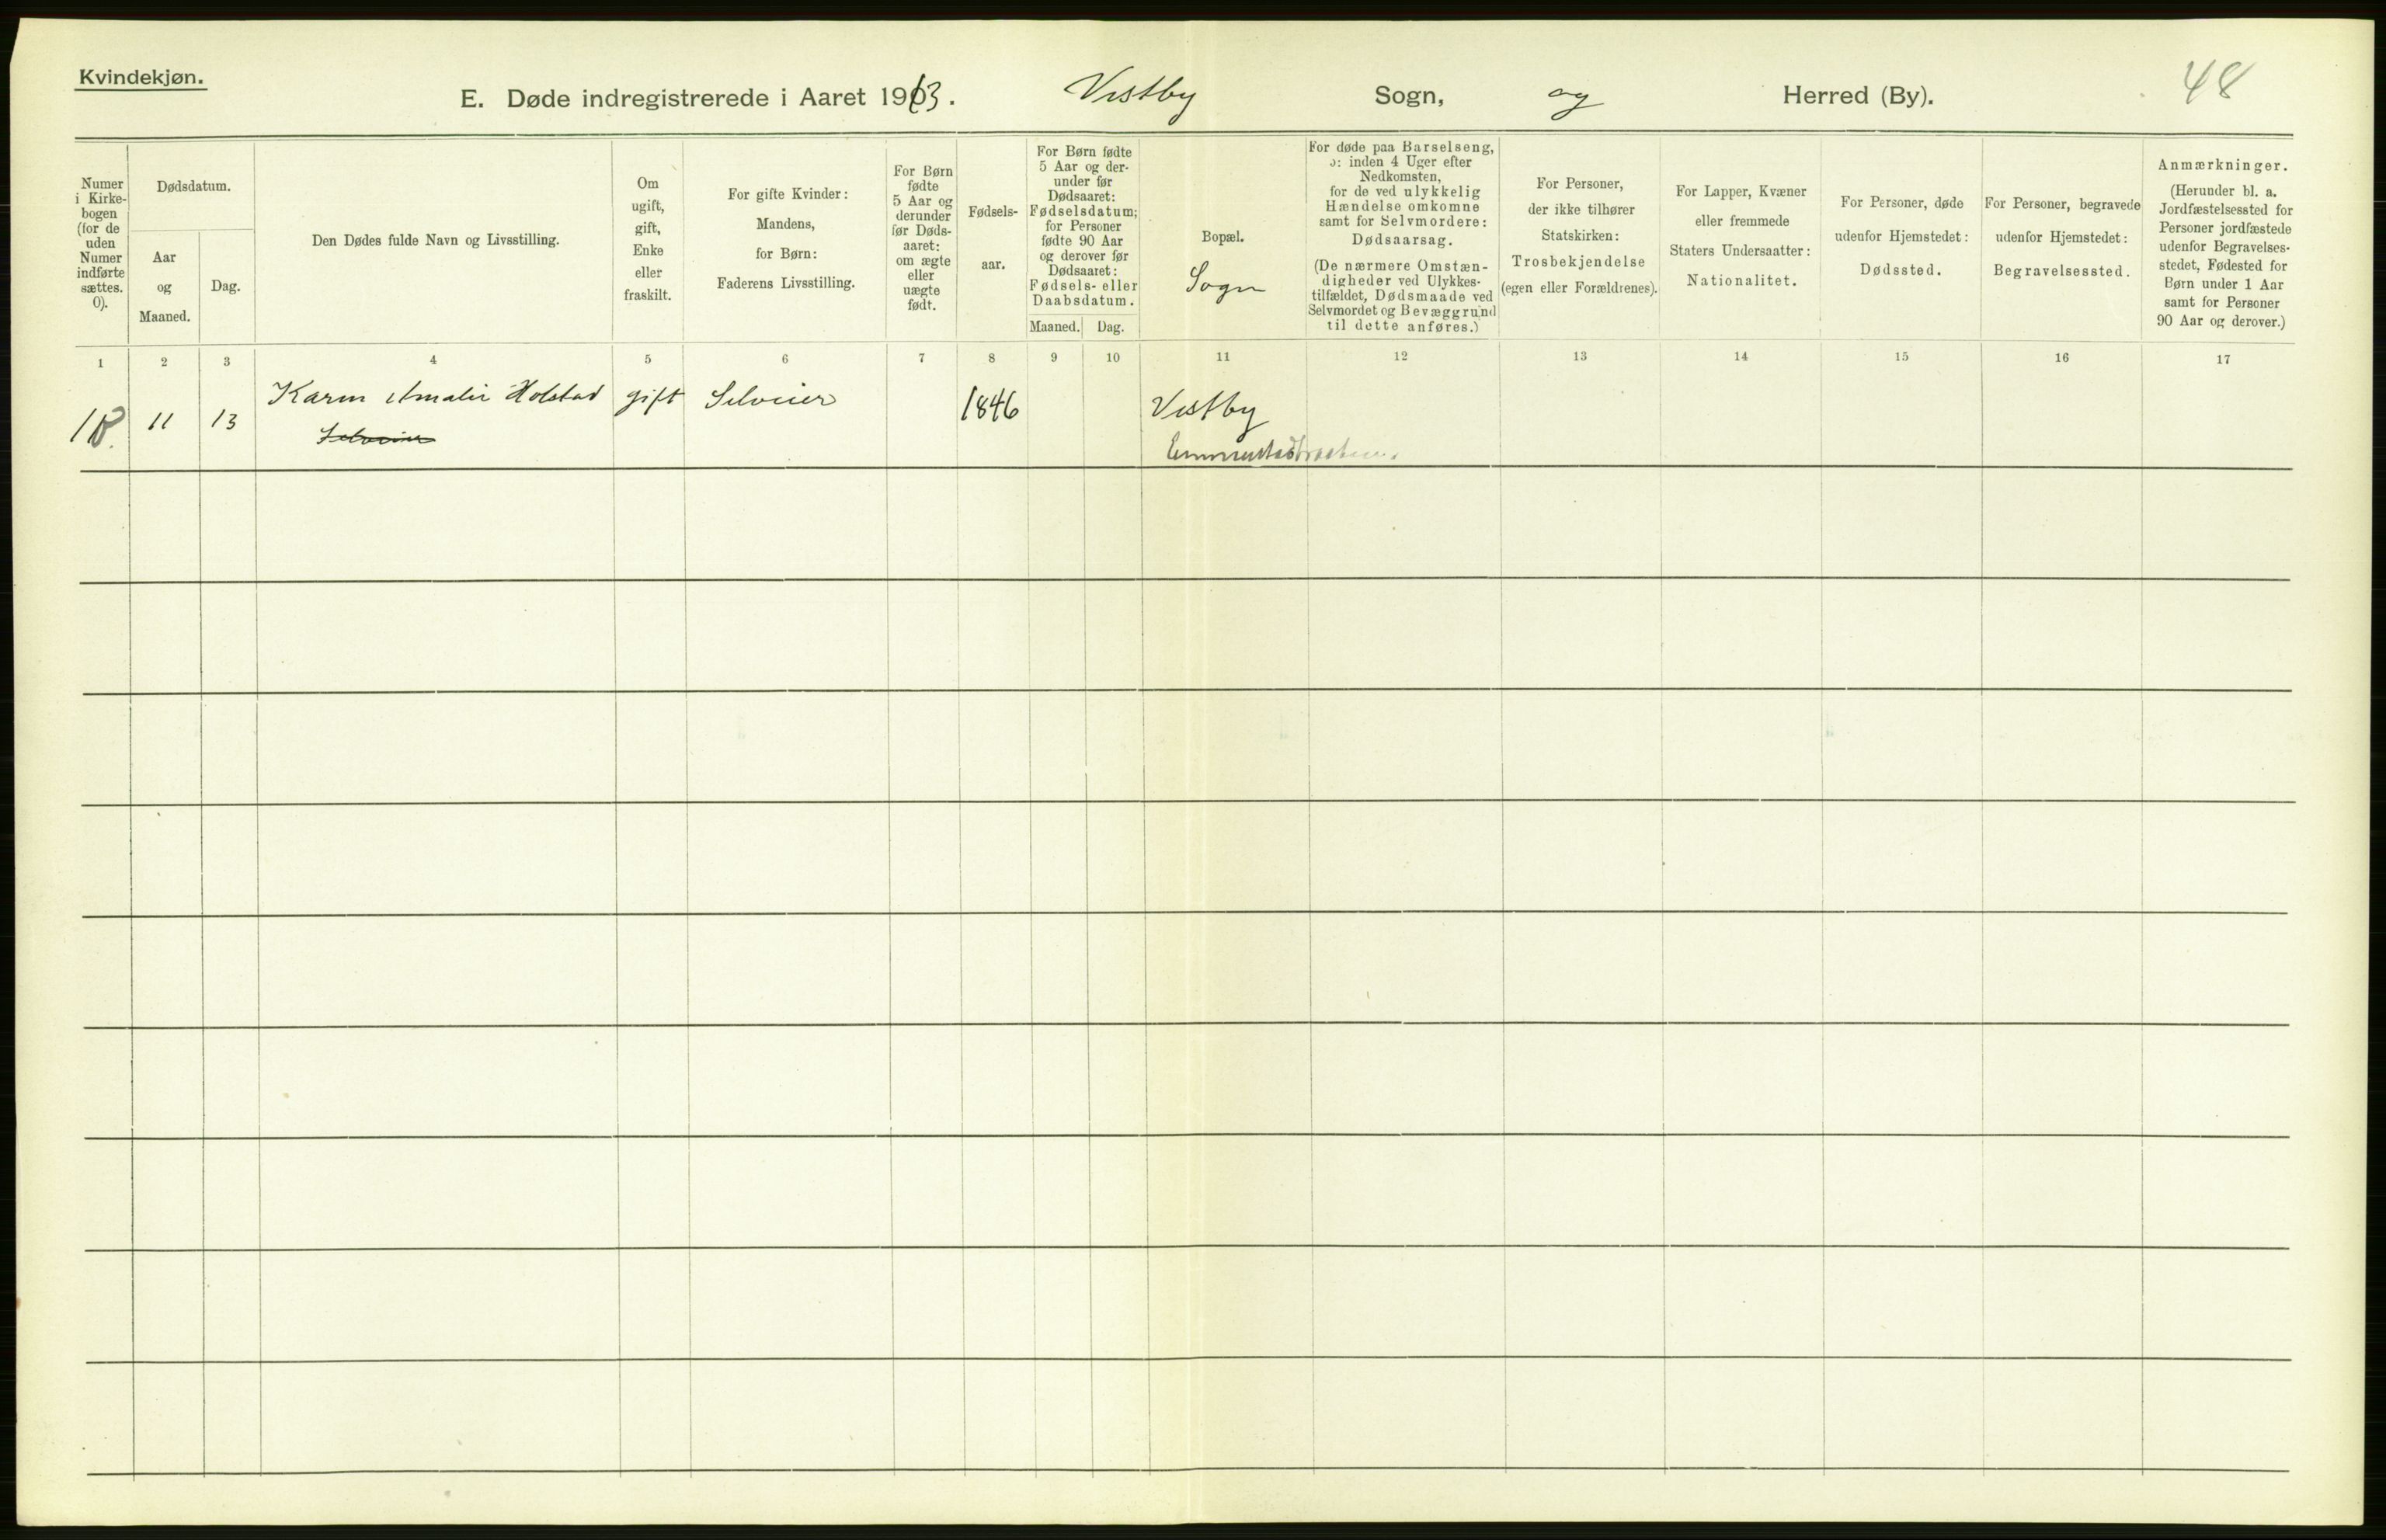 Kvindekjøn.
E. Døde indregistrerede i Aaret 1903. Vestby Sogn, og Herred (By). 48
Numer
i Kirke-
bogen
(for de
uden
Numer
indførte
sættes.
0).
Dødsdatum.
Aar
og
Maaned.
Dag.
Den Dødes fulde Navn og Livsstilling.
Om
ugift,
gift,
Enke
eller
fraskilt.
For gifte Kvinder:
Mandens,
for Børn:
Faderens Livsstilling.
For Børn
fødte
5 Aar og
derunder
før Døds-
aaret:
om ægte
eller
uægte
født.
Fødsels-
aar.
For Børn fødte
5 Aar og der-
under før
Dødsaaret:
Fødselsdatum;
for Personer
fødte 90 Aar
og derover før
Dødsaaret:
Fødsels- eller
Daabsdatum.
Maaned. Dag.
Bopæl.
Sogn
For døde paa Barselseng,
ɔ: inden 4 Uger efter
Nedkomsten,
for de ved ulykkelig
Hændelse omkomne
samt for Selvmordere:
Dødsaarsag.
(De nærmere Omstæn-
digheder ved Ulykkes-
tilfældet, Dødsmaade ved
Selvmordet og Bevæggrund
til dette anføres.)
For Personer,
der ikke tilhører
Statskirken:
Trosbekjendelse
(egen eller Forældrenes).
For Lapper, Kvæner
eller fremmede
Staters Undersaatter:
Nationalitet.
For Personer, døde
udenfor Hjemstedet:
Dødssted.
For Personer, begravede
udenfor Hjemstedet:
Begravelsessted.
Anmærkninger.
(Herunder bl. a.
Jordfæstelsessted for
Personer jordfæstede
udenfor Begravelses-
stedet, Fødested for
Børn under 1 Aar
samt for Personer
90 Aar og derover.)
1 2 3 4 5 6 7 8 9 10 11 12 13 14 15 16 17
18. 11 13 Karen Amalie Holstad gift Selveier 1846 Vestby
Selveier